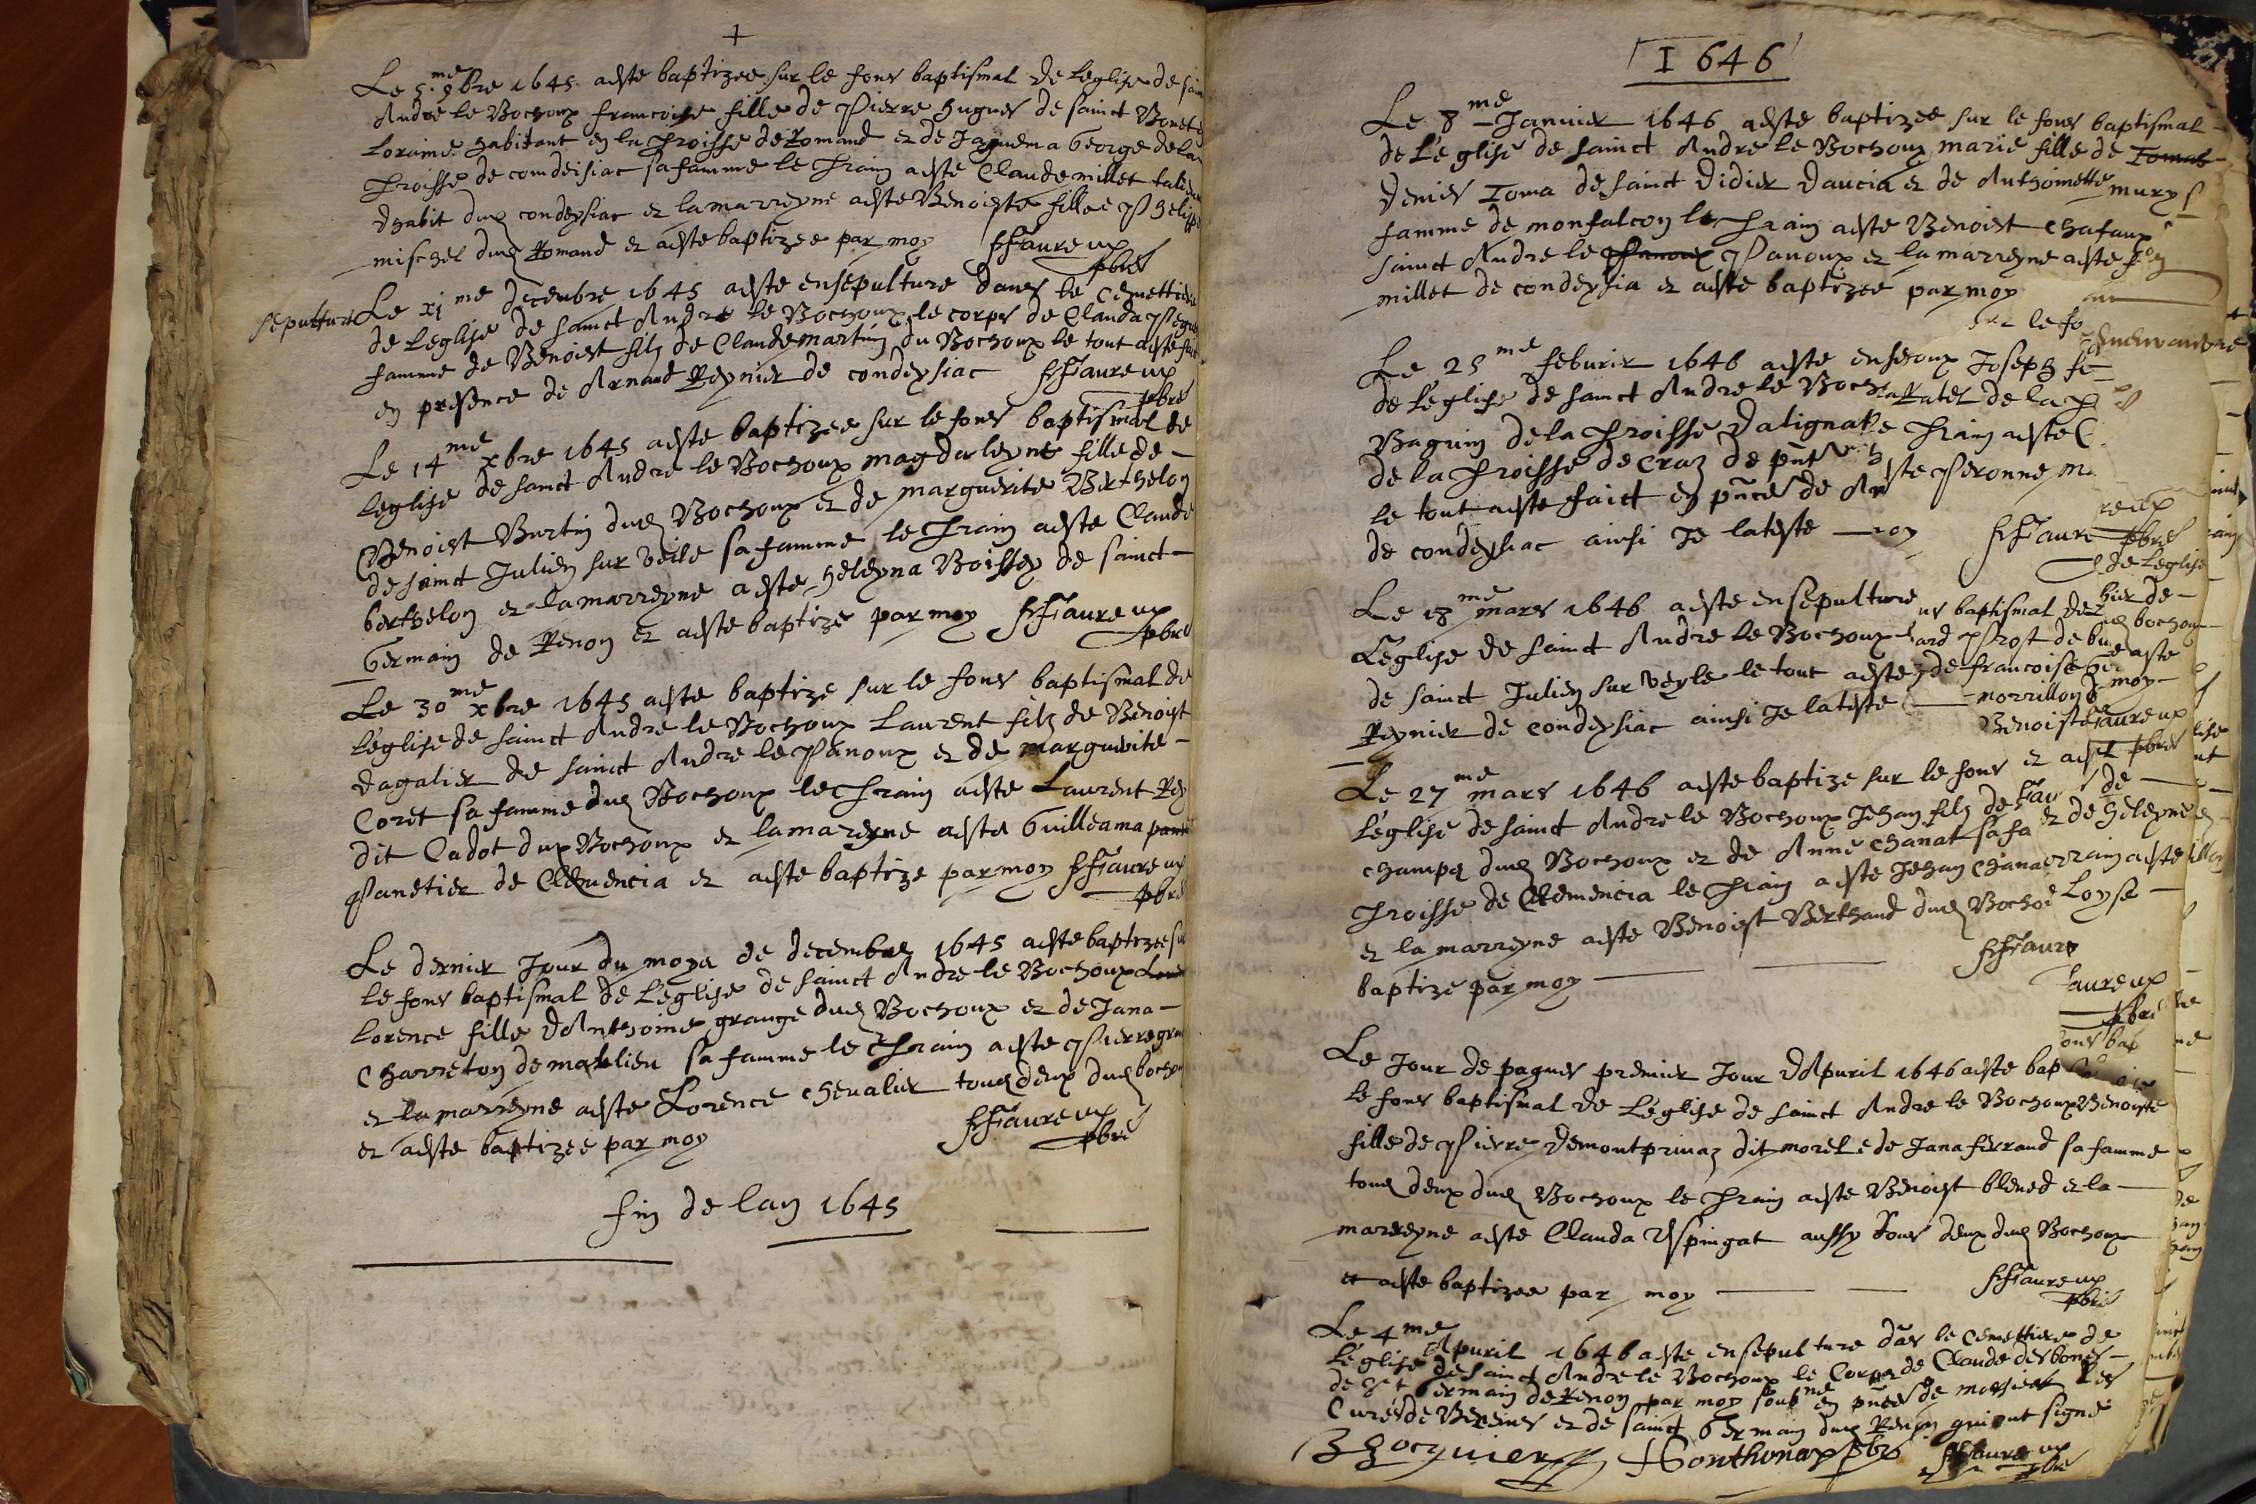 +
Le 5.me 9bre 1645 aeste baptizee sur le fons baptismal de leglise de sain
Andre le Bochoux francoise fille de Pierre Hugues de sainct Bonet
Loraine habitant en la Proisse de Romand et de Jaquema George de la
Proisse de comdeisiac sa famme le Prain aeste Claude millet
dhabit duds condeysiac et la marreyne aeste Benoiste fille
mischel duds Romand et aeste baptizee par moy FFaureux
pbre
sepulture Le xj me decenbre 1645 aeste ensepulture dans le Cemettiere
de Leglise de sainct Andre le Bochoux le corps de Clauda
famme de Benoist filz de Claude martin du Bochoux le tout aeste faict
en presence de Arnaud Reynier de condeysiac FFaureux
pbre
Le 14 me xbre 1645 aeste baptizee sur le fons baptismal de
Leglise de sainct Andre le Bochoux magdaleyne fille de
Benoist Burtin duds Bochoux et de marguerite Berthelon
de sainct Julien sur veile sa famme le Prain aeste Claude
berthelon et la marreyne aeste Heleyna Boissey de sainct
Germain de Renon et aeste baptize par moy FFaureux
pbre
Le 30 me xbre 1645 aeste baptize sur le fons baptismal de
Léglise de sainct Andre le Bochoux Laurent filz de Benoist
dagalier de sainct Andre le Panoux et de marguerite
Coret sa famme duds Bochoux le Prain aeste Laurent Rey
dit Cadot dux Bochoux et la mareyne aesta Guilleama
Panetier de Clemencia et aeste baptize par moy FFaureux
pbre
Le dernier Jour du moys de decembre 1645 aeste baptizee sur
le fons baptismal de Léglise de sainct Andre le Bochoux
Lorence fille dAnthoine grange duds Bochoux et de Jana
Charreton de marlieu sa famme le Prain aeste Pierre gran
et la marreyne aeste Lorence chevalier tous deux duds bochou
et aeste baptizee par moy FFaureux
pbre
fin de lan 1645
1646
Le 8 me Januier 1646 aeste baptizee sur le fons baptismal
de Léglise de sainct Andre le Bochoux marie fille de Tomas
denies Toma de sainct Didier Daucia et de Anthoinette murys
famme de monfalcon le Prain aeste Benoist chafaux
sainct Andre le Panoux Panoux et la marreyne aeste
millet de condeysia et aeste baptizee par moy
sur le fo
Le 25 me feburier 1646 aeste ensepoux Joseph fe
de Léglise de sainct Andre le Boch atel de la P
Baguin de la Proisse Dalignat le Prain aeste C
de la Proisse de Craz de pnt aeste Peronne m
le tout aeste faict en pnce de Ar
de condeysiac ainsi Je lateste moy FFaure
reux
pbre
de Leglise
Le 18 me mars 1646 aeste ensepulture ns baptismal de
Léglise de sainct Andre le Bochoux ard Prost de bu
bochoux
de sainct Julien sur veyle le tout aeste de francoise
aeste
Reynier de condeysiac ainsi Je lateste morrillon
moy
Benoiste
Faureux
pbre
Le 27 me mars 1646 aeste baptize sur le fons et aest
Léglise de sainct Andre le Bochoux Jehan filz de
champs duds Bochoux et de Anne Chanat sa fa et de Heleyne
Proisse de Clemencia le Prain aeste Jehan Chana rrain aeste
et la marreyne aeste Benoist Berthaud duds Bocho Loyse
baptize par moy FFaure
Faureux
pbre
ons bap
Le Jour de pasques premier Jour dApuril 1646 aeste bap
le fons baptismal de Léglise de sainct Andre le Bochoux Benoiste
fille de Pierre Demontpriuaz dit morel e de Jana ferrand sa famme
tous deux duds Bochoux le Prain aeste Benoist blened et la
marreyne aeste Clauda Espingat aussy tous deux duds Bochoux
et aeste baptizee par moy FFaureux
pbre
Le 4 me Apuril 1646 aeste ensepulture dans le Cemettiere de
Léglise de sainct Andre le Bochoux le Corps de Claude desbones
de St Germain de Renon par moy soub me en pnces de messieurs les
Curés de Bereins et de sainct Germain duds Renon qui ont signé
Jocquier Gonthonax pbre FFaureux
pbre